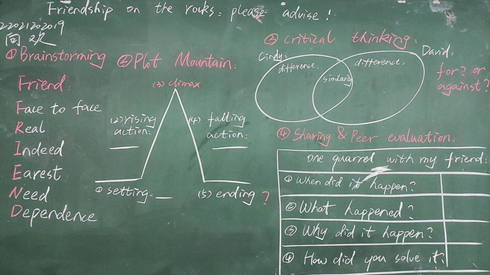 Friendship on the rocks: please advise!
2202120 2019
① Brainstorming
Friend:
Face to face
Real
Indeed
Earest
Need
Dependence
② Plot Mountain:
(3) climax
(2) rising action:
(4) falling action:
(1) setting:
(5) ending?
③ critical thinking.
Cindy:
David:
difference.
similar
difference.
for? or against?
④ Sharing & Peer evaluation:
One quarrel with my friend:
① When did it happen?
② What happened?
③ Why did it happen?
④ How did you solve it?